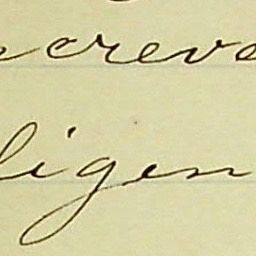 screve
ligen